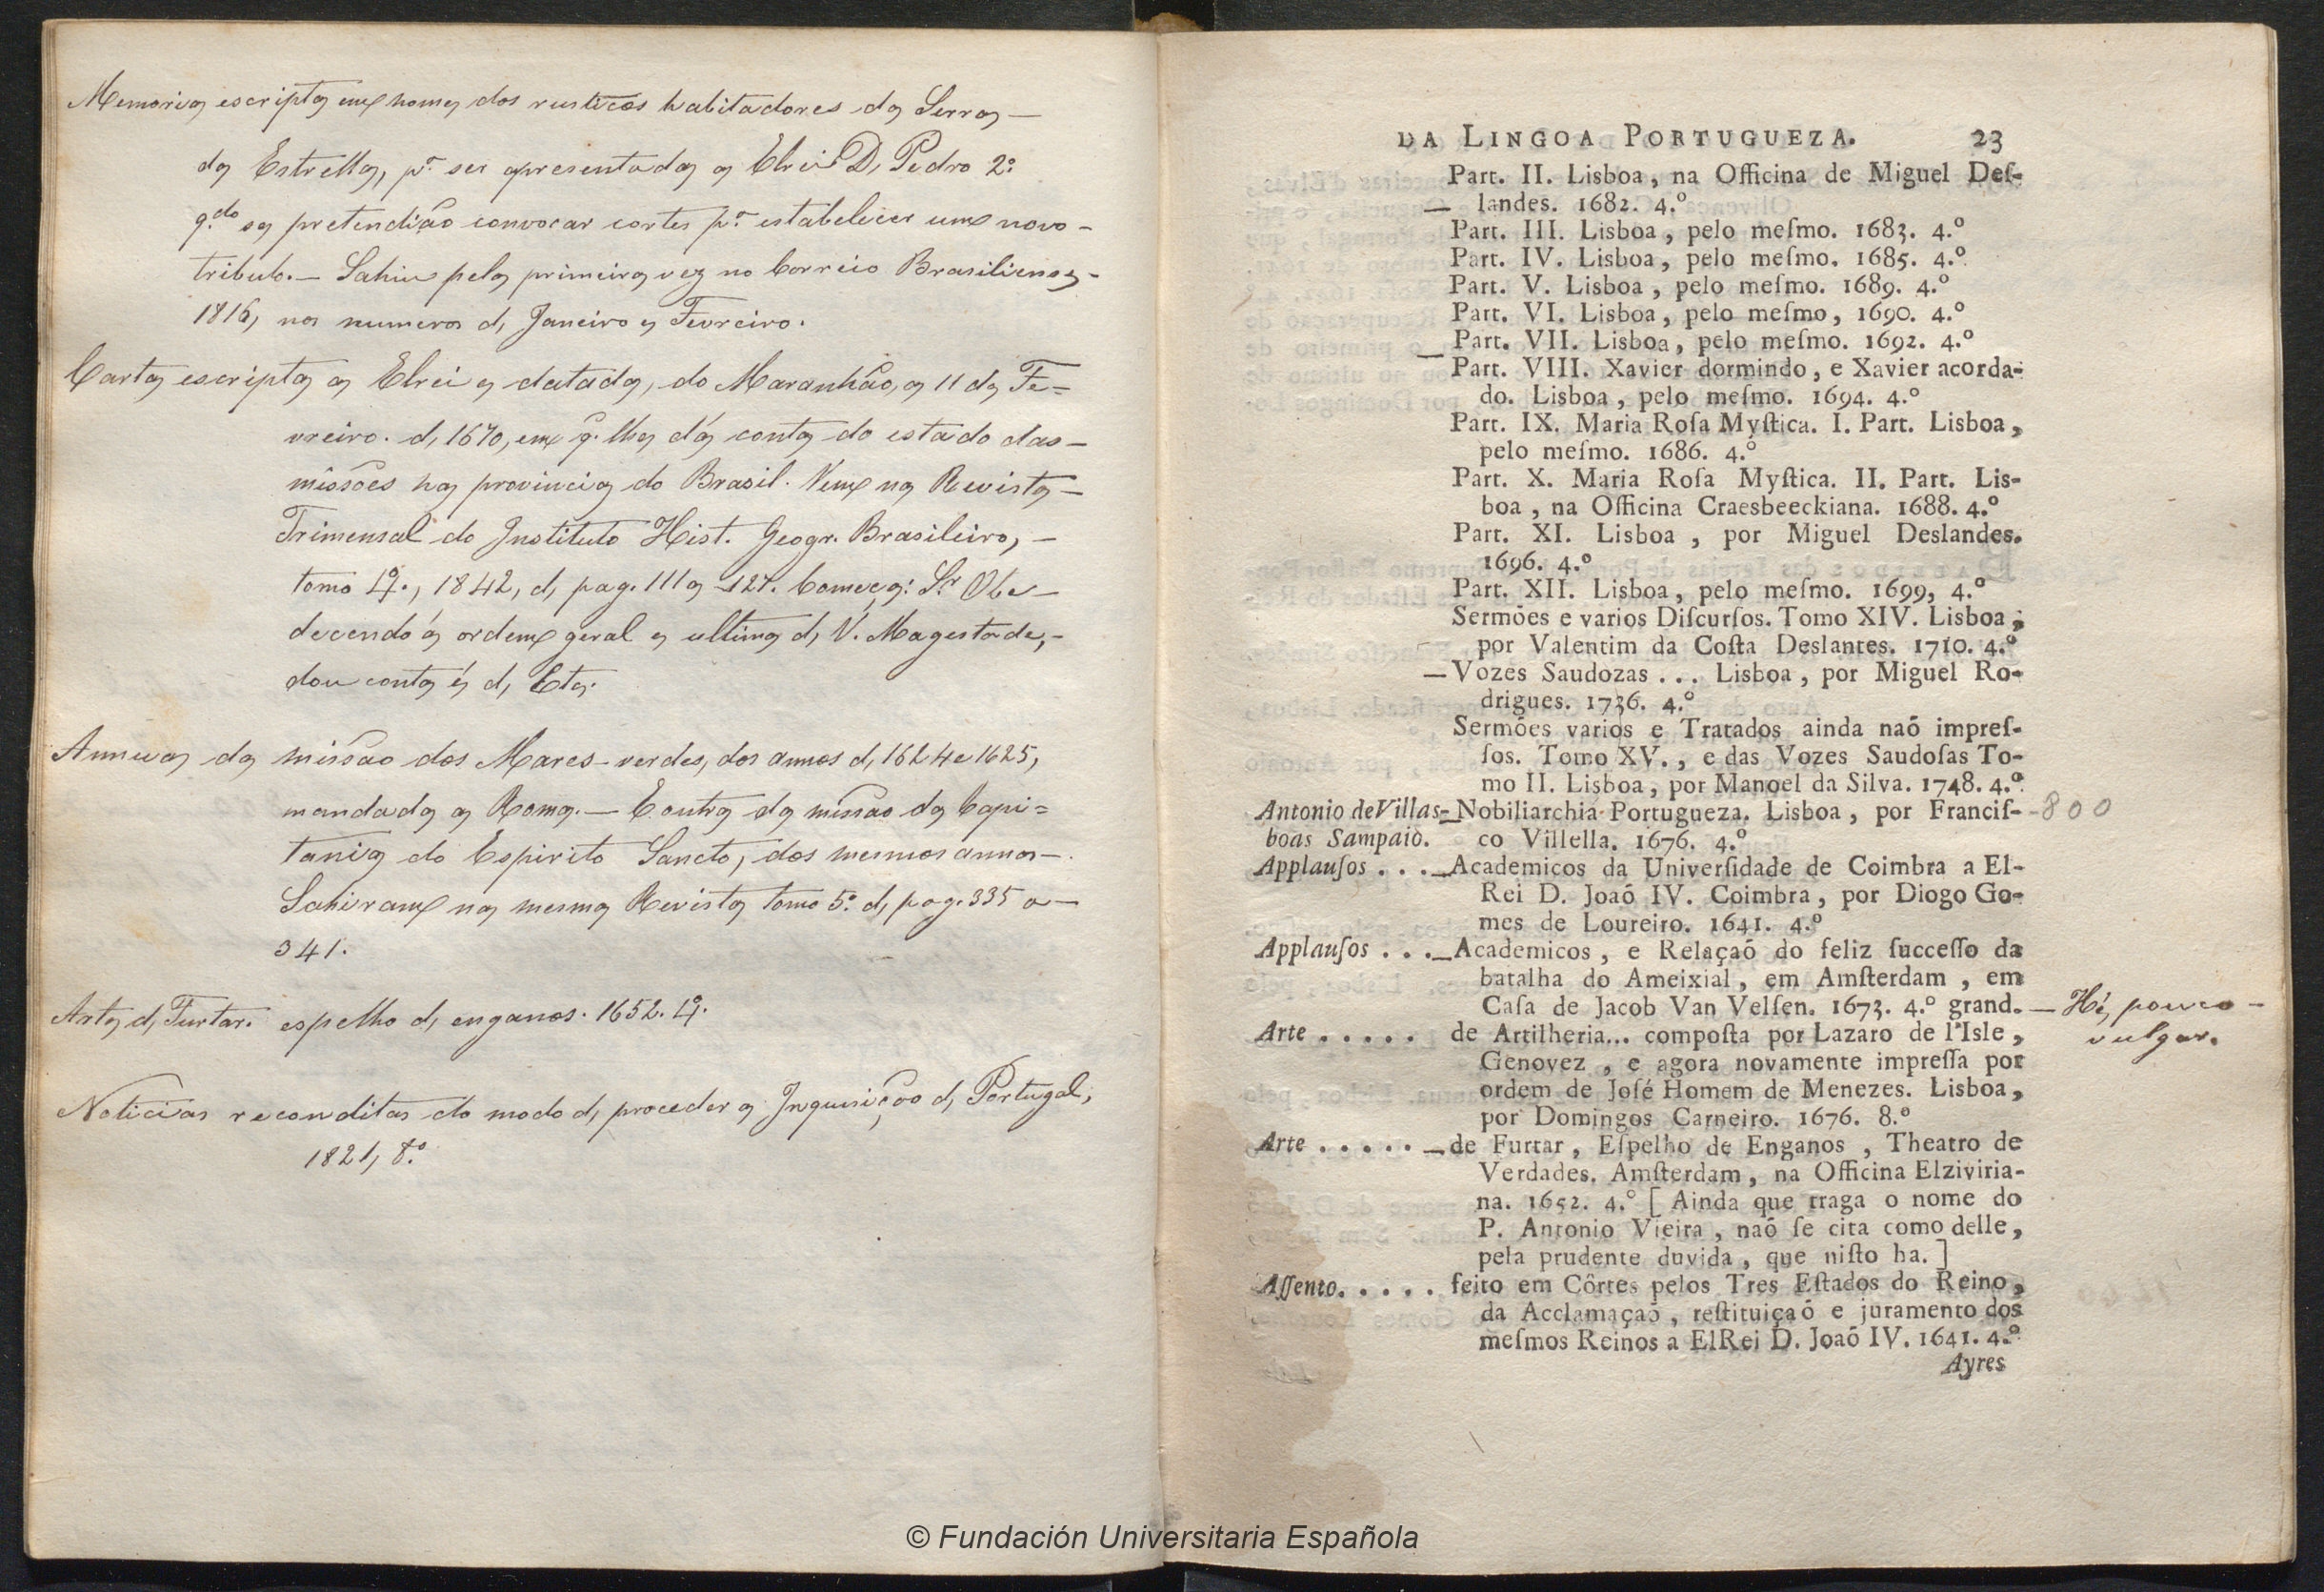 Memoria escripta em nome dos rusticos habitadores da Serra —
da Estrella, pª ser apresentada a Elrei D. Pedro 2º
q.do se pretendião convocar cortes pª estabelecer um novo —
tributo. — Sahiu pela primeira vez no Correio Brasiliense —
1816, nos numeros de Janeiro e Fevreiro.
Carta escripta a Elrei e datada, do Maranhão, a 11 de Fe=
vreiro. de 1670, em q. lhe dá conta do estado das —
missões na provincia do Brasil. Vem na Revista —
Trimensal do Instituto Hist. Geogr. Brasileiro, —
tomo 4º., 1842, de pag. 111 a 127. Começa: Sr Obe —
decendo á ordem geral e ultima de V. Magestade, —
dou conta é de Etc.
Annua da missão dos Mares-verdes, dos annos de 1624 e 1625,
mandada a Roma. — E outra da missão da Capi=
tania do Espirito Sancto, dos mesmos annos —.
Sahiram na mesma Revista tomo 5º de pag. 335 a —
341.
Arte de Furtar. espelho de enganos. 1652. 4º.
Noticias reconditas do modo de proceder a Inquisição de Portugal,
1821, 8º.
DA LINGOA PORTUGUEZA. 23
Part. II. Lisboa, na Officina de Miguel Deſ-
— landes. 1682. 4.º
Part. III. Lisboa, pelo meſmo. 1683. 4.º
Part. IV. Lisboa, pelo meſmo. 1685. 4.º
Part. V. Lisboa, pelo meſmo. 1689. 4.º
Part. VI. Lisboa, pelo meſmo, 1690. 4.º
— Part. VII. Lisboa, pelo meſmo. 1692. 4.º
Part. VIII. Xavier dormindo, e Xavier acorda-
do. Lisboa, pelo meſmo. 1694. 4.º
Part. IX. Maria Roſa Myſtica. I. Part. Lisboa,
pelo meſmo. 1686. 4.º
Part. X. Maria Roſa Myſtica. II. Part. Lis-
boa, na Officina Craesbeeckiana. 1688. 4.º
Part. XI. Lisboa, por Miguel Deslandes.
1696. 4.º
Part. XII. Lisboa, pelo meſmo. 1699, 4.º
Sermões e varios Diſcurſos. Tomo XIV. Lisboa;
por Valentim da Coſta Deslantes. 1710. 4.º
— Vozes Saudozas ... Lisboa, por Miguel Ro-
drigues. 1736. 4.º
Sermões varios e Tratados ainda naõ impreſ-
ſos. Tomo XV., e das Vozes Saudoſas To-
mo II. Lisboa, por Manoel da Silva. 1748. 4.º
Antonio de Villas- Nobiliarchia Portugueza. Lisboa, por Franciſ- - 800
boas Sampaio. co Villella. 1676. 4.º
Applauſos . . . — Academicos da Univerſidade de Coimbra a El-
Rei D. Joaõ IV. Coimbra, por Diogo Go-
mes de Loureiro. 1641. 4.º
Applauſos . . . — Academicos, e Relaçaõ do feliz ſucceſſo da
batalha do Ameixial, em Amſterdam, em
Caſa de Jacob Van Velſen. 1673. 4.º grand. — Hé pouco —
Arte . . . . . de Artilheria... compoſta por Lazaro de l'Isle, vulgar.
Genovez, e agora novamente impreſſa por
ordem de Joſé Homem de Menezes. Lisboa,
por Domingos Carneiro. 1676. 8.º
Arte . . . . . — de Furtar, Eſpelho de Enganos, Theatro de
Verdades. Amſterdam, na Officina Elziviria-
na. 1652. 4.º [ Ainda que traga o nome do
P. Antonio Vieira, naõ ſe cita como delle,
pela prudente duvida, que niſto ha. ]
Aſſento. . . . . feito em Côrtes pelos Tres Eſtados do Reino,
da Acclamaçaõ, reſtituiçaõ e juramento dos
meſmos Reinos a ElRei D. Joaõ IV. 1641. 4.º
Ayres
© Fundación Universitaria Española